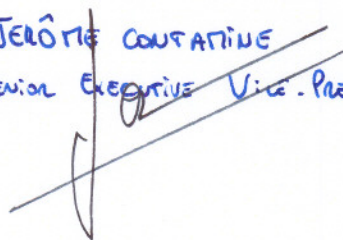 JERÔME CONTAMINE
ENIOR EXECUTIVE VICE-PRE